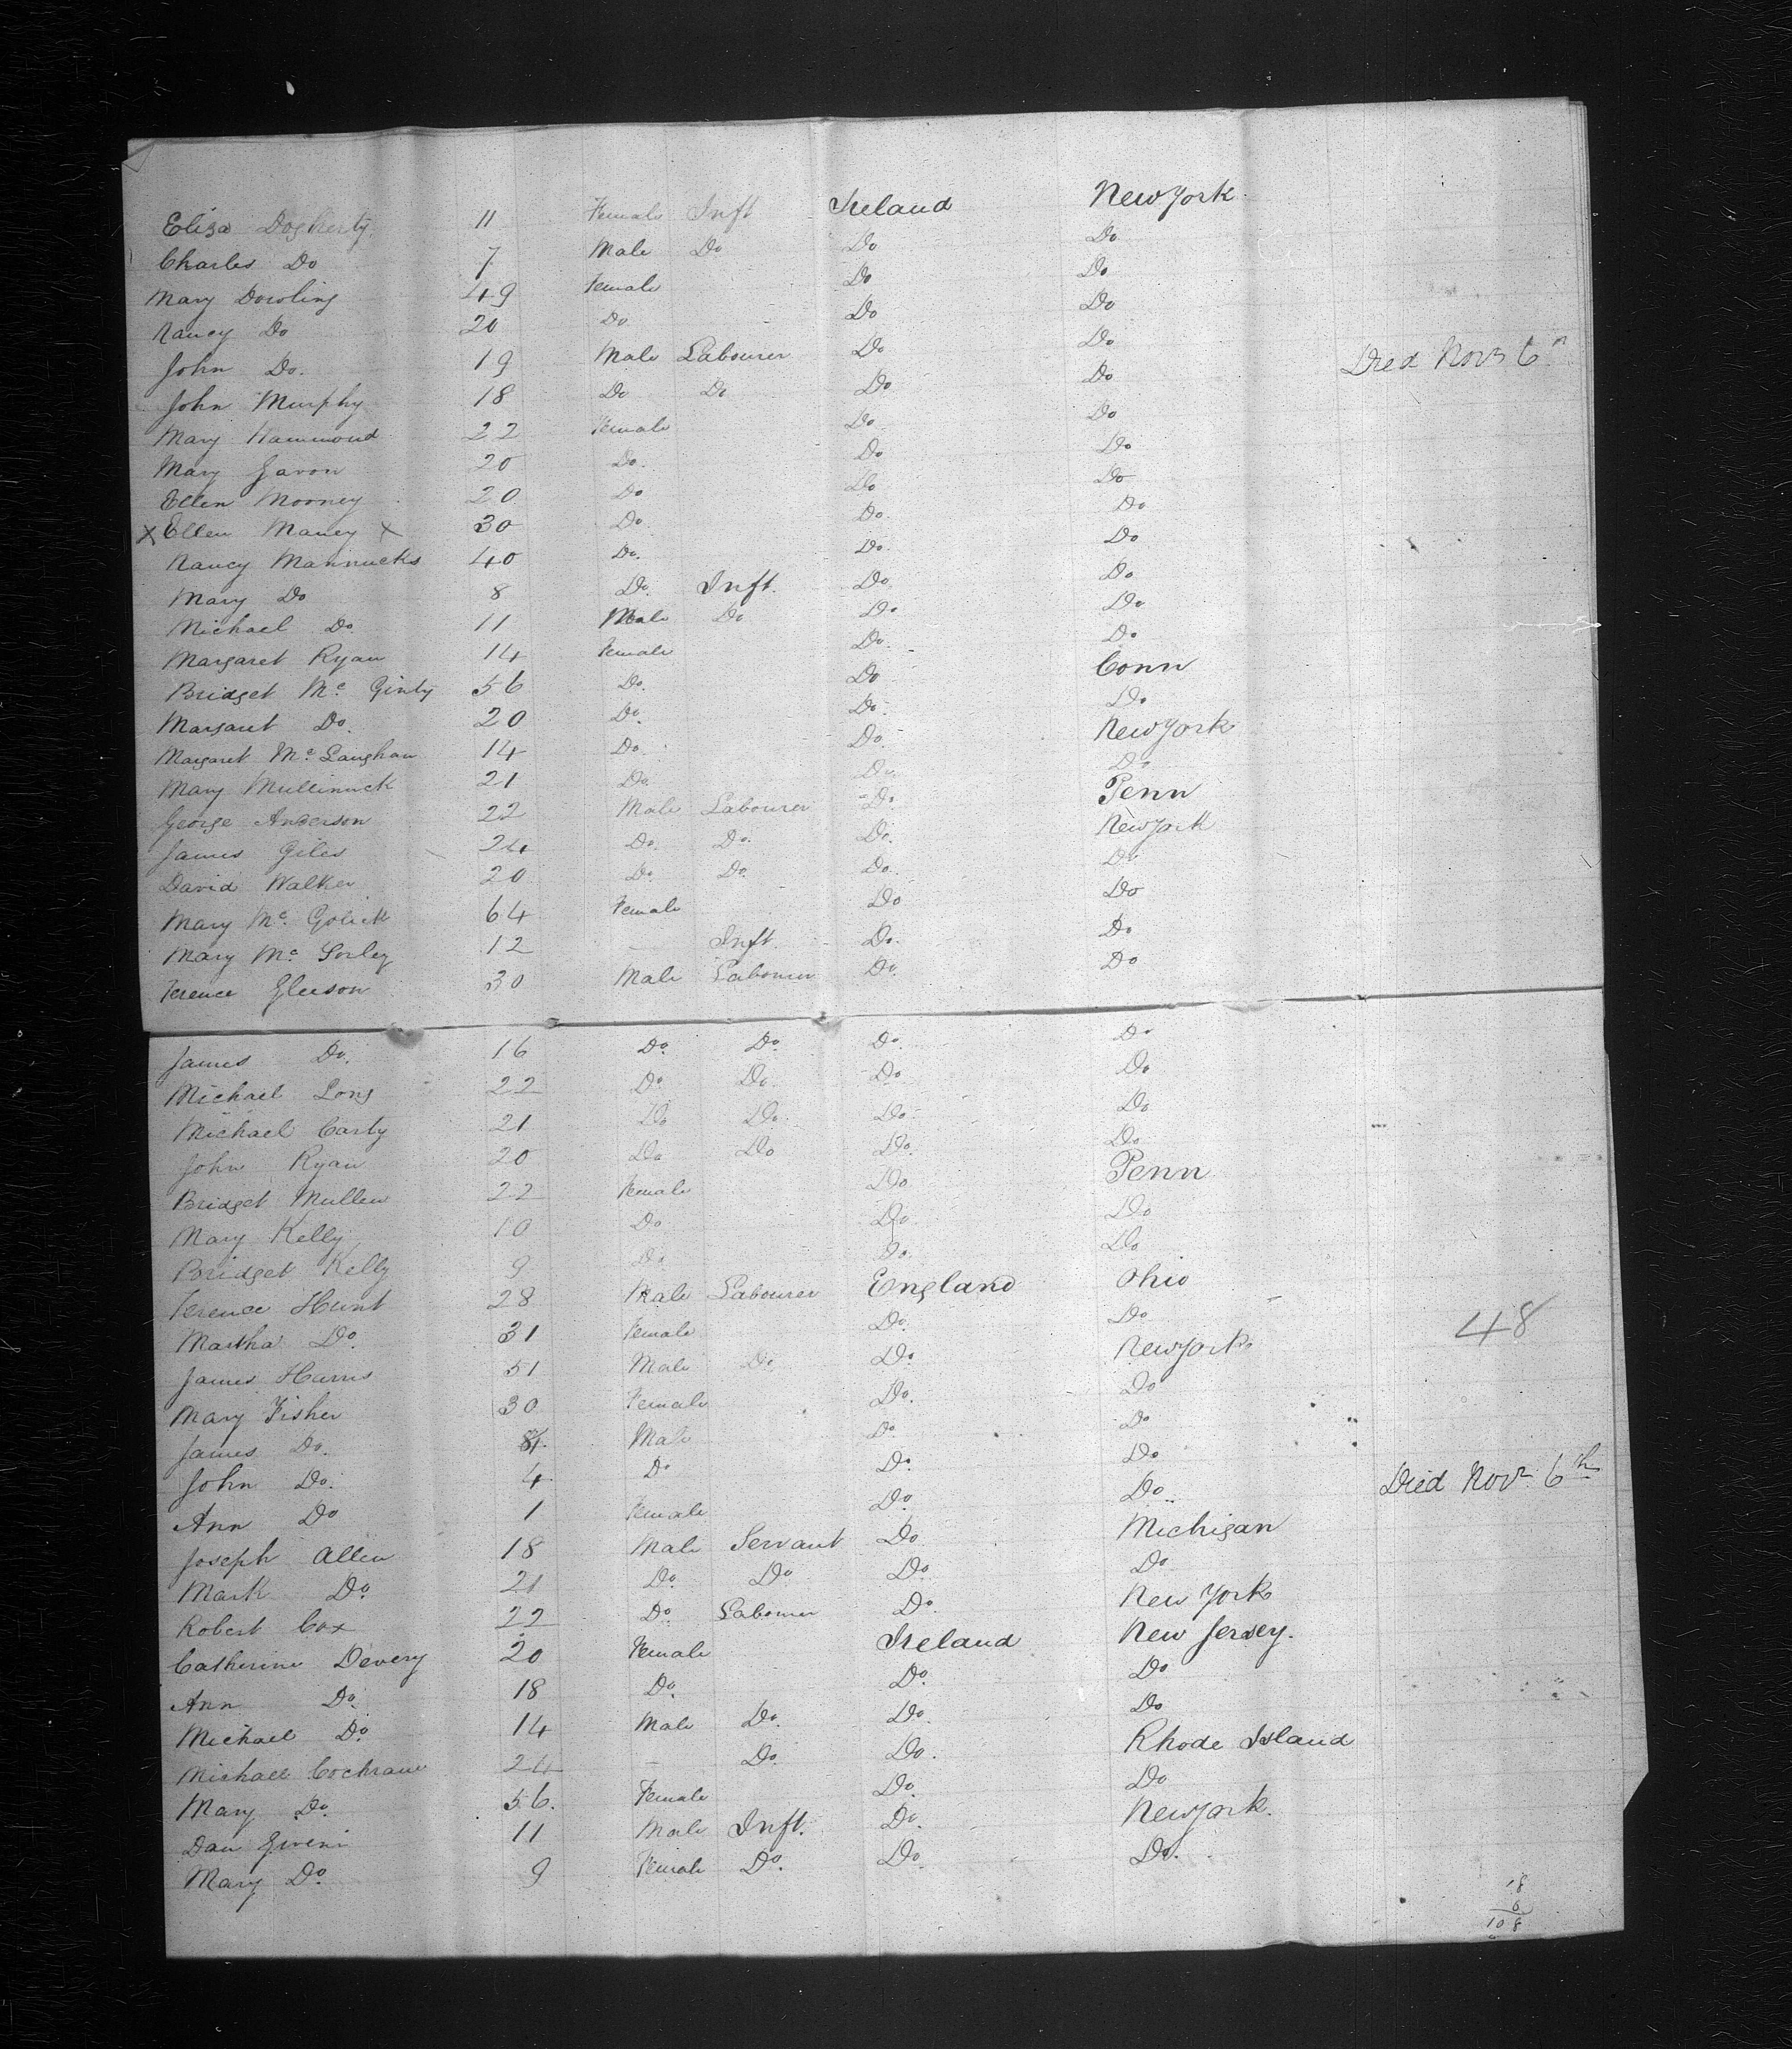 Eliza Dogherty 11 Female Inft Ireland New York
Charles Do 7 Male Do Do Do
Mary Dowling 49 Female Do Do
Nancy Do 20 Do Do Do
John Do. 19 Male Labourer Do Do Died Novr 6th
John Murphy 18 Do Do Do Do
Mary Hammond 22 Female Do Do
Mary Gavon 20 Do. Do Do
Ellen Mooney 20 Do Do Do
X Ellen Maney X 30 Do. Do. Do
Nancy Mannucks 40 Do. Do. Do
Mary Do 8 Do. Inft. Do Do
Michael Do. 11 Male Do Do Do
Margaret Ryan 14 Female Do. Do
Bridget Mc Ginty 56 Do. Do Conn
Margaret Do. 20 Do. Do. Do
Margaret Mc Laughan 14 Do. Do. New York
Mary Mullinuck 21 Do. Do. Do
George Anderson 22 Male Labourer Do. Penn
James Giles 24 Do. Do. Do. New York
David Walker 20 Do. Do. Do. Do
Mary Mc. Golick 64 Female Do Do
Mary Mc Sorley 12 – Inft. Do. Do
Terence Gleeson 30 Male Labourer Do. Do
James Do. 16 Do. Do. Do. Do
Michael Long 22 Do Do. Do Do
Michael Carty 21 Do Do. Do. Do
John Ryan 20 Do Do Do. Do
Bridget Mullen 22 Female Do Penn
Mary Kelly 10 Do Do. Do
Bridget Kelly 9 Do Do. Do
Terence Hunt 28 Male Labourer England Ohio
Martha Do. 31 Female Do. Do 48
James Harris 51 Male Do Do. New York
Mary Fisher 30 Female Do. Do
James Do. Male Do. Do
John Do. 4 Do Do. Do
Ann Do 1 Female Do. Do. Died Novr 6th
Joseph Allen 18 Male Servant Do Michigan
Mark Do. 21 Do. Do Do. Do
Robert Cox 22 Do. Labourer Do. New York
Catherine Devery 20 Female Ireland New Jersey.
Ann Do. 18 Do. Do. Do
Michael Do. 14 Male Do. Do. Do
Michael Cochrane 24 – Do. Do. Rhode Island
Mary Do. 56. Female Do. Do
Dan 11 Male Inft. Do. New York.
Mary Do. 9 Female Do. Do. Do.
18
108